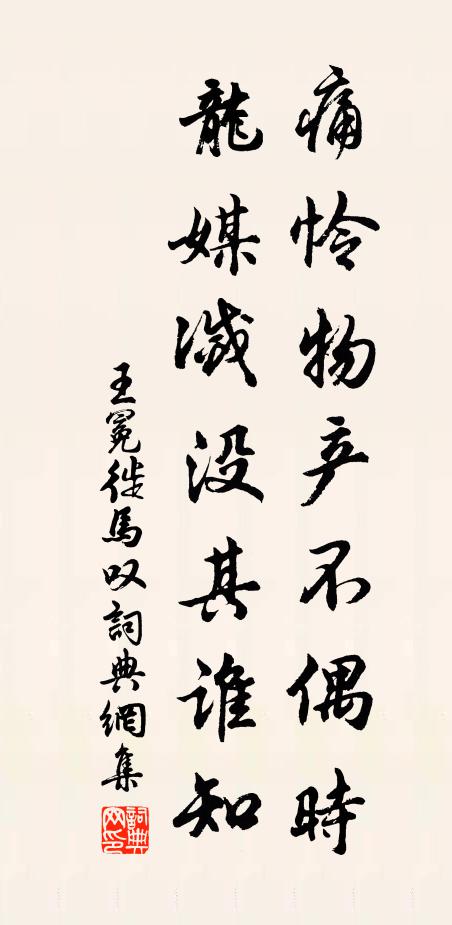 痛怜物产不偶時
龍媒滅没其誰知
王冕徙馬叹詞典網集
詞典网印